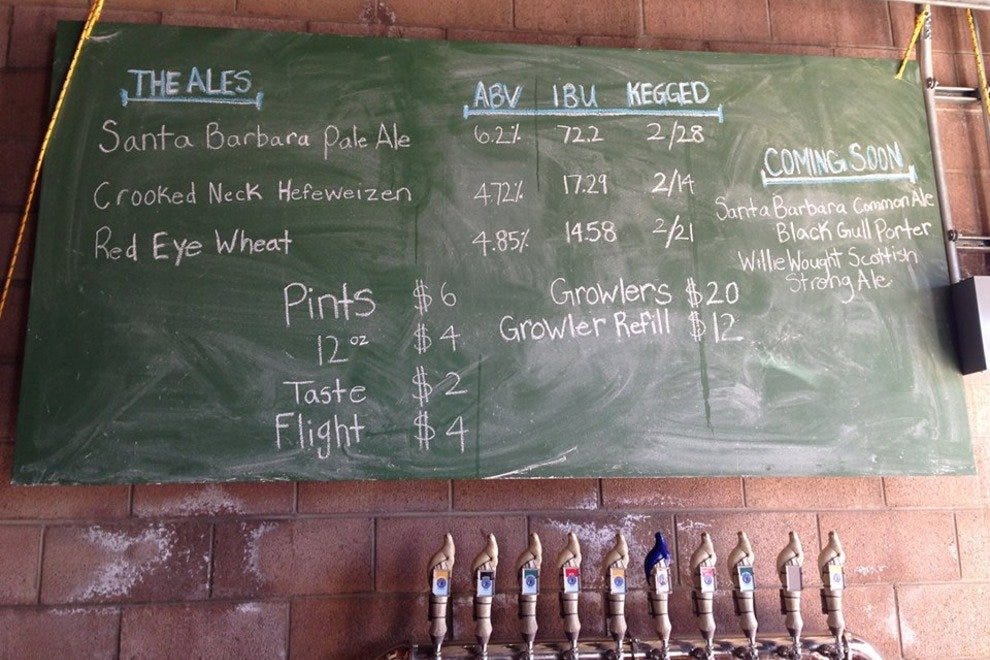 THE ALES ABV IBU KEGGED
Santa Barbara Pale Ale 6.2% 72.2 2/28
Crooked Neck Hefeweizen 4.72% 17.29 2/14
Red Eye Wheat 4.85% 14.58 2/21
Pints $6
12 oz $4
Taste $2
Flight $4
Growlers $20
Growler Refill $12
COMING SOON
Santa Barbara Common Ale
Black Gull Porter
Willie Wought Scottish
Strong Ale